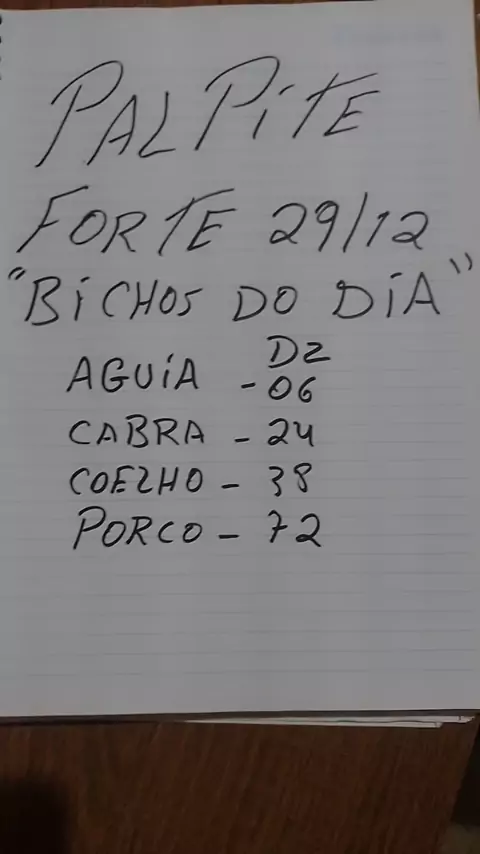 PALPiTE
FORTE 29/12
"BiCHOS DO DiA"
DZ
AGUiA - 06
CABRA - 24
COELHO - 38
PORCO - 72